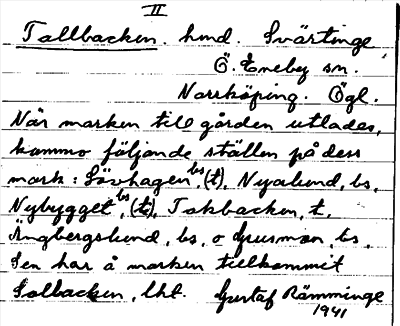 II
Tallbacken. hmd. Svärtinge
Ö. Eneby sn.
Norrköping. Ögl.
När marken till gården utlades,
kommo följande ställen på dess
mark: Lövhagen, bs (t), Nyalund, bs,
Nybygget, bs (t), Takbacken, t.
Ängbergslund, bs, o Grusmon, bs,
Sen har å marken tillkommit
Solbacken, lht. Gustaf Rämminge
1941